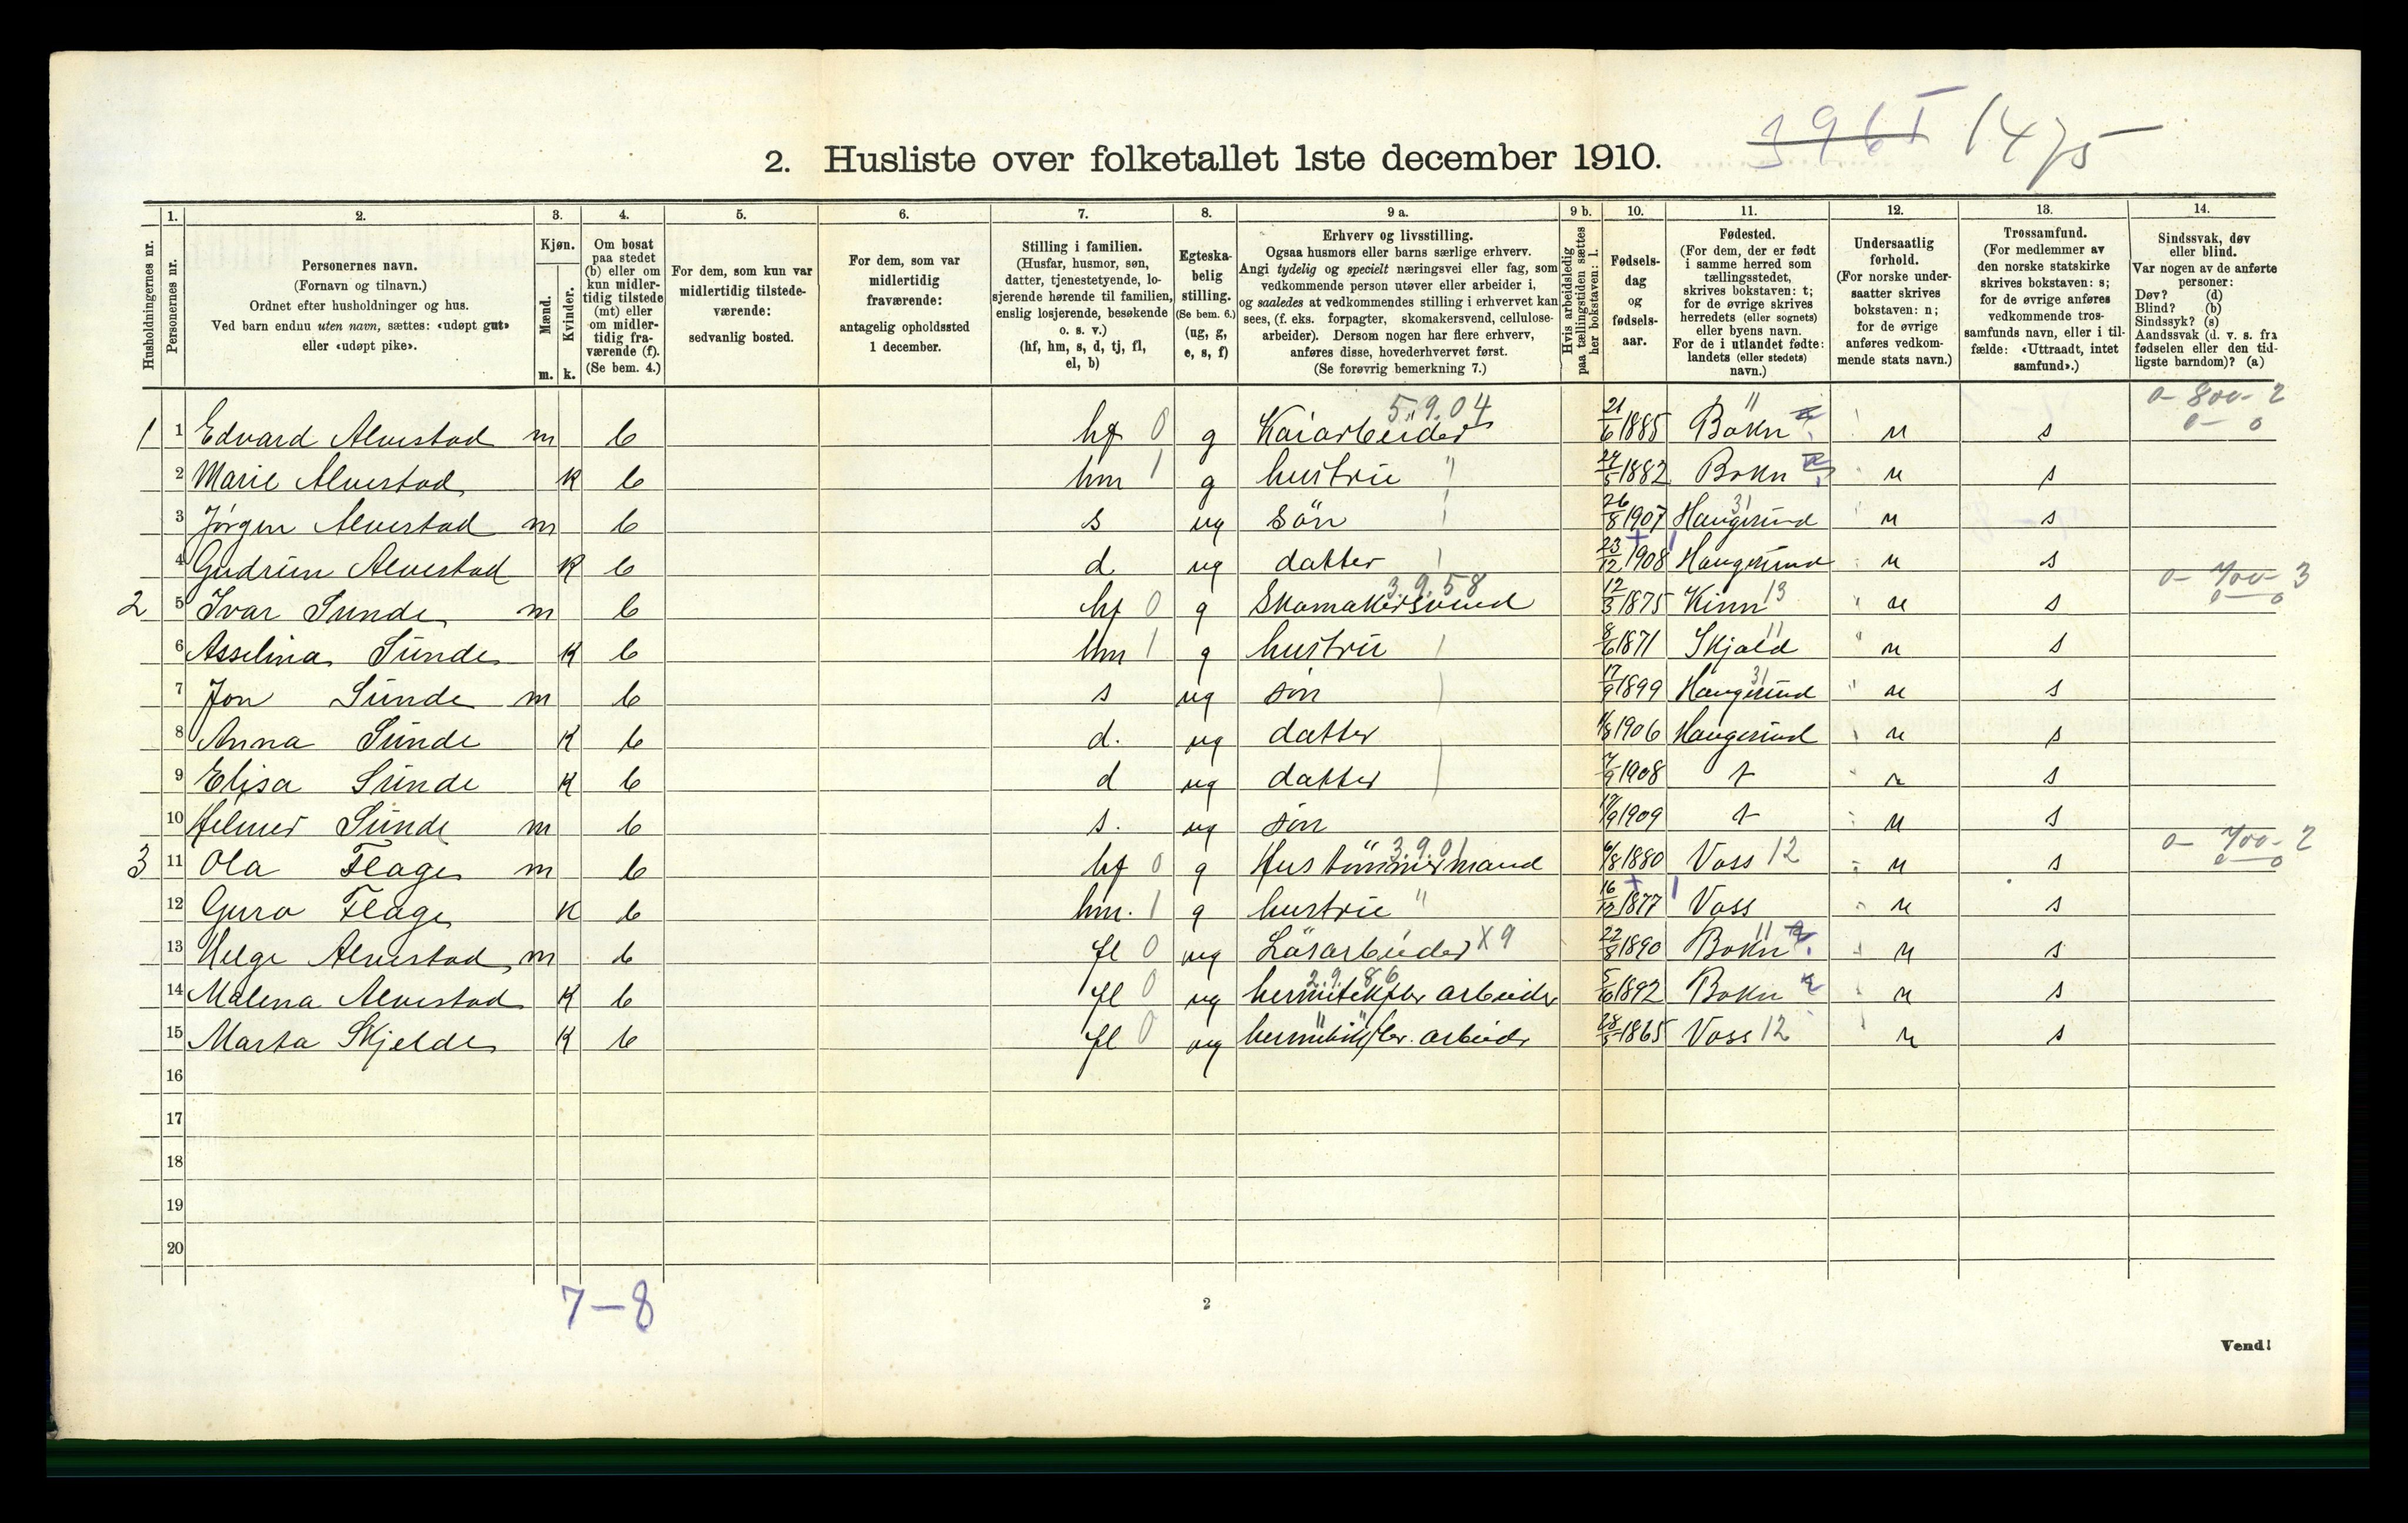 3961 1475
2. Husliste over folketallet 1ste december 1910.
Husholdningernes nr.
1. Personernes nr.
2. Personernes navn.
(Fornavn og tilnavn.)
Ordnet efter husholdninger og hus.
Ved barn endnu uten navn, sættes: «udøpt gut»
eller «udøpt pike».
3. Kjøn.
Mænd. m.
Kvinder. k.
4. Om bosat
paa stedet
(b) eller om
kun midler-
tidig tilstede
(mt) eller
om midler-
tidig fra-
værende (f).
(Se bem. 4.)
5. For dem, som kun var
midlertidig tilstede-
værende:
sedvanlig bosted.
6. For dem, som var
midlertidig
fraværende:
antagelig opholdssted
1 december.
7. Stilling i familien.
(Husfar, husmor, søn,
datter, tjenestetyende, lo-
sjerende hørende til familien,
enslig losjerende, besøkende
o. s. v.)
(hf, hm, s, d, tj, fl,
el, b)
8. Egteska-
belig
stilling.
(Se bem. 6.)
(ug, g,
e, s, f)
9 a. Erhverv og livsstilling.
Ogsaa husmors eller barns særlige erhverv.
Angi tydelig og specielt næringsvei eller fag, som
vedkommende person utøver eller arbeider i,
og saaledes at vedkommendes stilling i erhvervet kan
sees, (f. eks. forpagter, skomakersvend, cellulose-
arbeider). Dersom nogen har flere erhverv,
anføres disse, hovederhvervet først.
(Se forøvrig bemerkning 7.)
9 b. Hvis arbeidsledig
paa tællingstiden sættes
her bokstaven: l.
10. Fødsels-
dag
og
fødsels-
aar.
11. Fødested.
(For dem, der er født
i samme herred som
tællingsstedet,
skrives bokstaven: t;
for de øvrige skrives
herredets (eller sognets)
eller byens navn.
For de i utlandet fødte:
landets (eller stedets)
navn.)
12. Undersaatlig
forhold.
(For norske under-
saatter skrives
bokstaven: n;
for de øvrige
anføres vedkom-
mende stats navn.)
13. Trossamfund.
(For medlemmer av
den norske statskirke
skrives bokstaven: s;
for de øvrige anføres
vedkommende tros-
samfunds navn, eller i til-
fælde: «Uttraadt, intet
samfund».)
14. Sindssvak, døv
eller blind.
Var nogen av de anførte
personer:
Døv? (d)
Blind? (b)
Sindssyk? (s)
Aandssvak (d. v. s. fra
fødselen eller den tid-
ligste barndom)? (a)
5.9.04 11 0-800-2
1 1 Edvard Alvestad m b hf 0 g Kaiarbeider 21/6 1885 Bokn n s 0-0
2 Marie Alvestad k b hm 1 g hustru " 24/5 1882 Bokn n s
3 Jørgen Alvestad m b s ug søn 26/8 1907 Haugesund 31 n s
4 Gudrun Alvestad k b d ug datter 23/12 1908 Haugesund n s
3.9.58 0-700-3
2 5 Ivar Sunde m b hf 0 g Skomakersvend 12/3 1875 Kinn 13 n s 0-0
6 Asselina Sunde k b hm 1 g hustru 8/6 1871 Skjold 11 n s
7 Jon Sunde m b s ug søn 17/9 1899 Haugesund 31 n s
8 Anna Sunde k b d. ug datter 11/8 1906 Haugesund n s
9 Elisa Sunde k b d ug datter 7/9 1908 t n s
10 Helmer Sunde m b s. ug søn 17/9 1909 t n s
3.9.01 0-700-2
3 11 Ola Flage m b hf 0 g Hustømmermand 6/8 1880 Voss 12 n s 0-0
12 Guro Flage k b hm. 1 g hustru " 16/12 1877 Voss n s
13 Helge Alvestad m b fl 0 ug Løsarbeider X9 22/8 1890 Bokn 11 n s
2.9.86
14 Malena Alvestad k b fl 0 ug hermetikfbr arbeider 5/6 1892 Bokn n s
15 Marta Skjelde k b fl 0 ug hermetikfbr. arbeider 28/5 1865 Voss 12 n s
16
17
18
19
20
7-8
2
Vend!